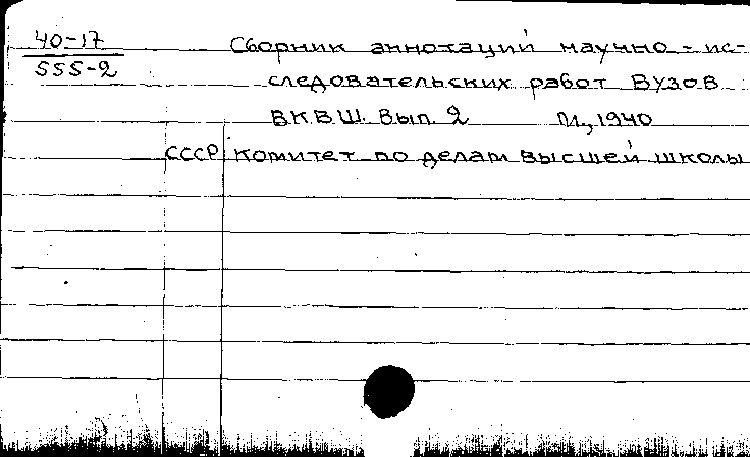 40-17
555-2
Сборник аннотаций научно-ис-
следовательских работ Вузов
ВКВШ. Вып. 2 М., 1940
СССР Комитет по делам высшей школы